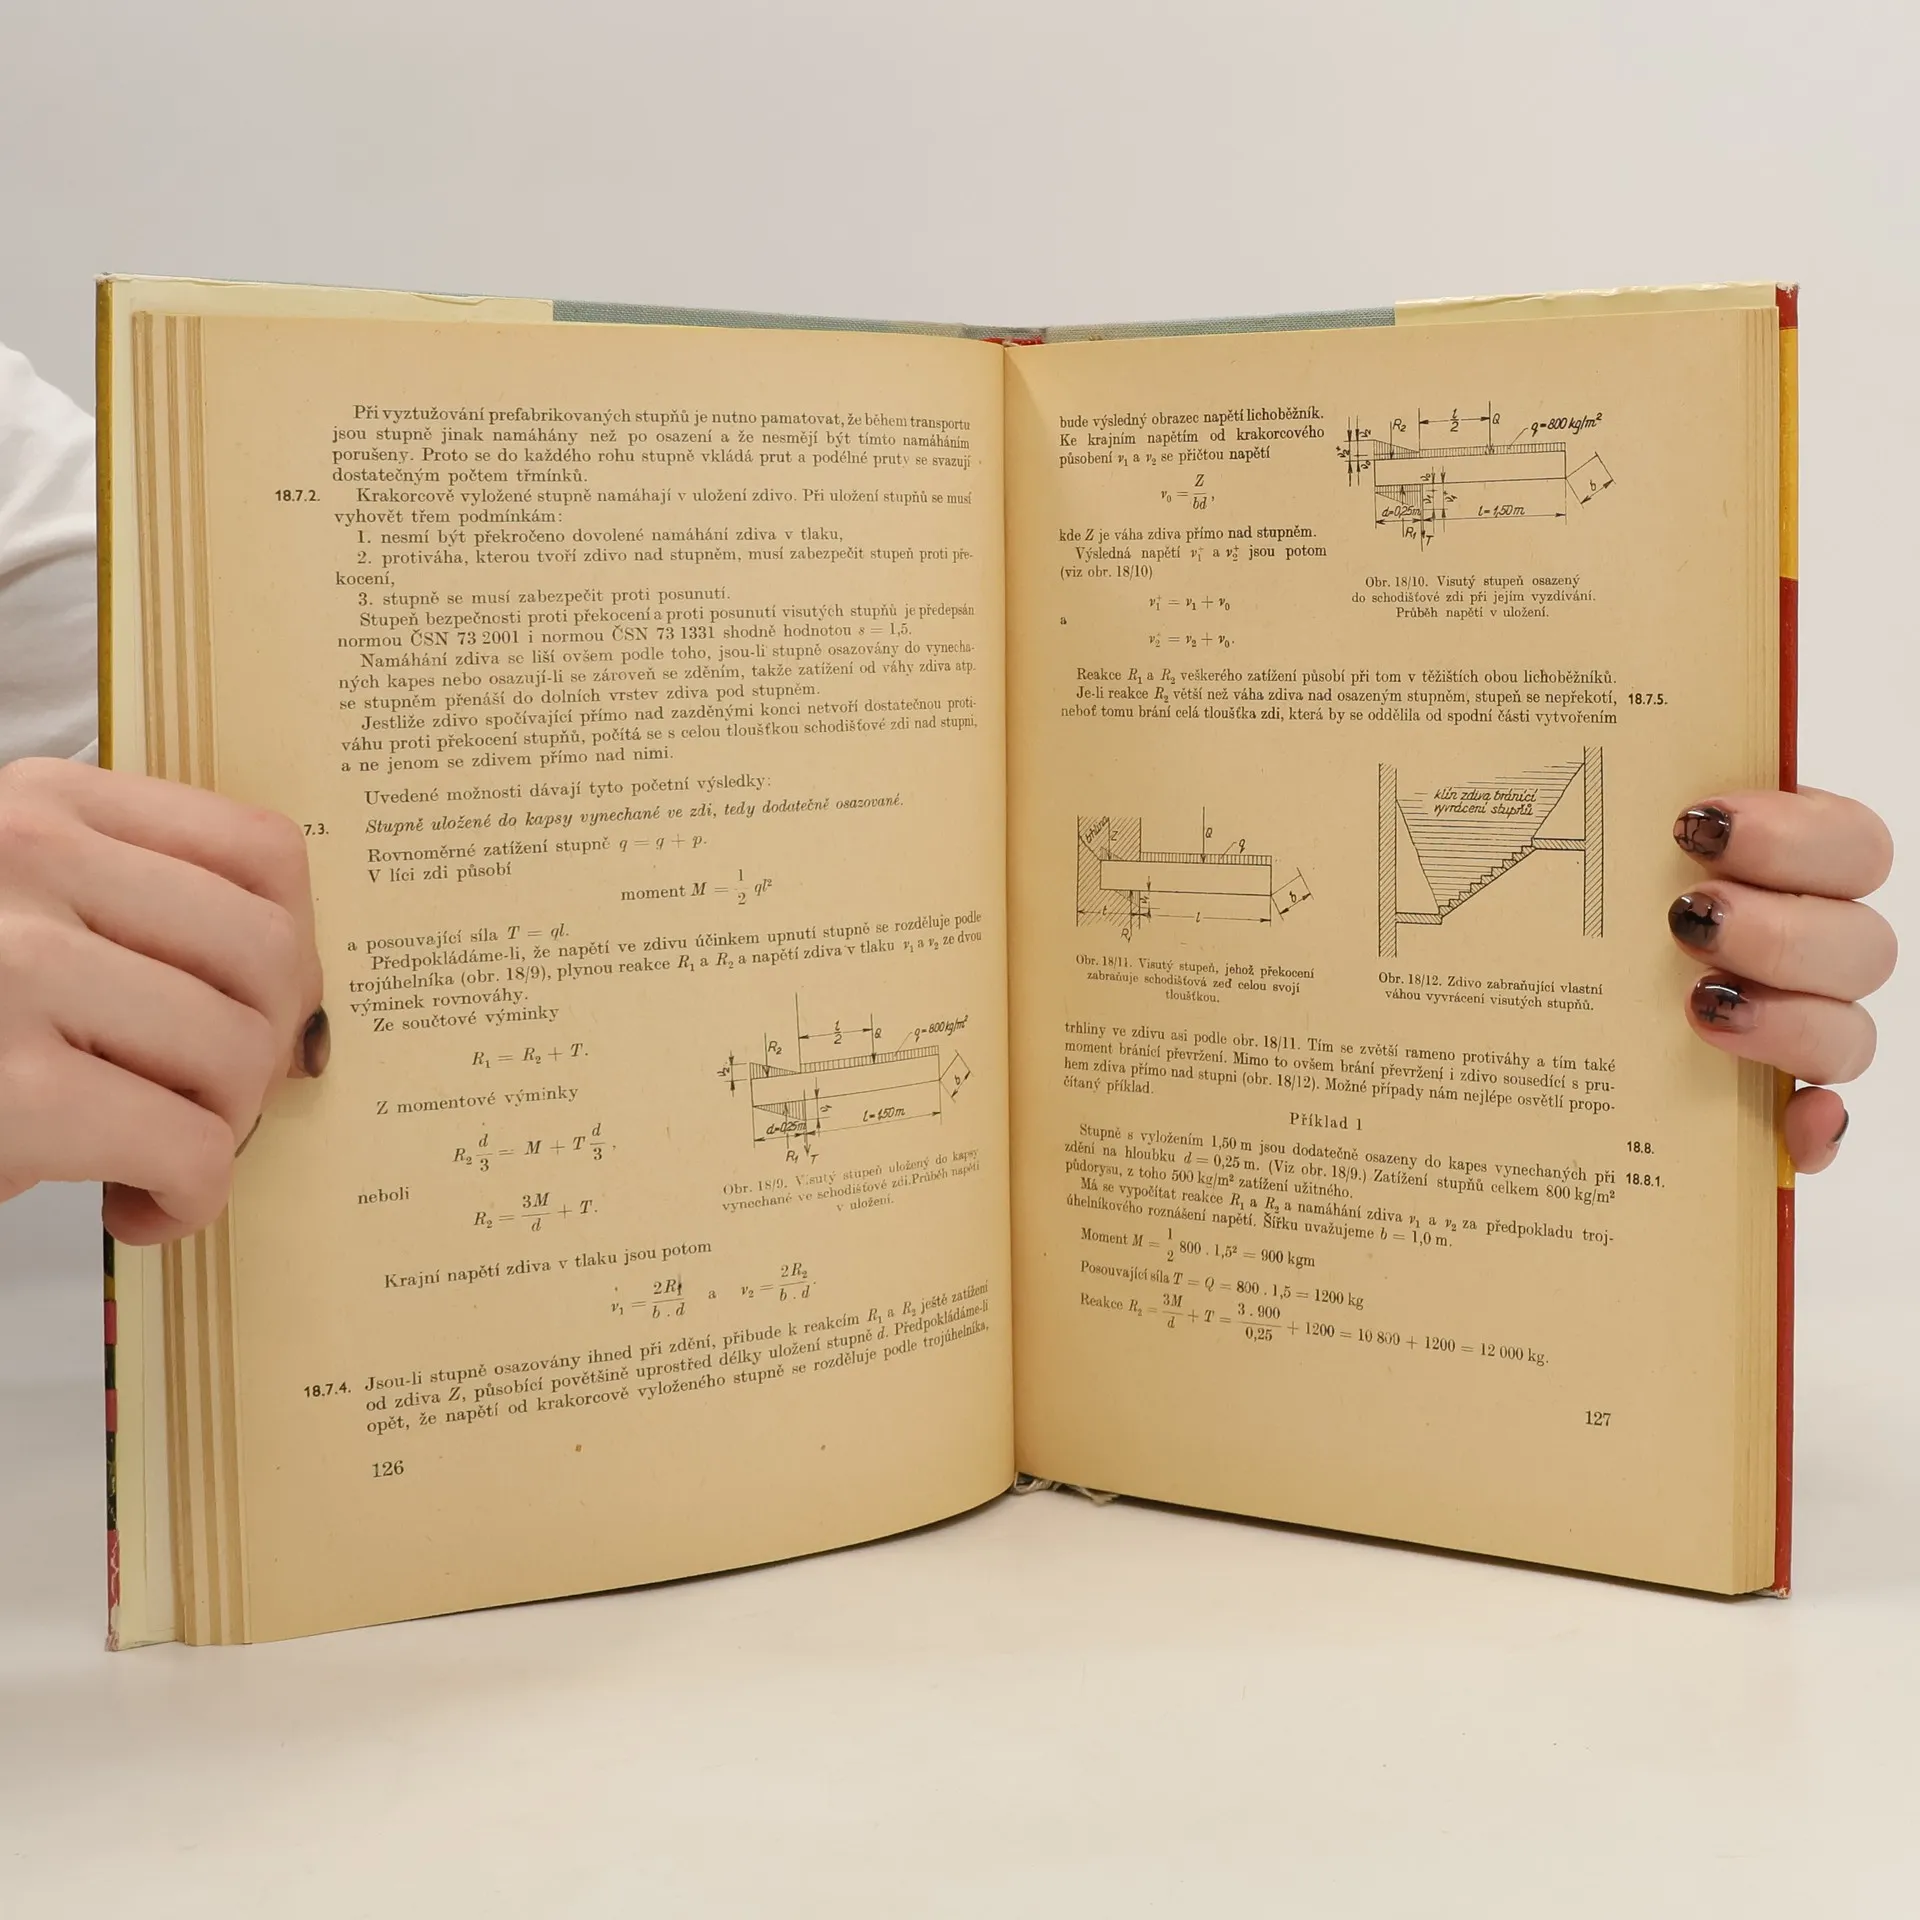 Při vyztužování prefabrikovaných stupňů je nutno pamatovat, že během transportu
jsou stupně jinak namáhány než po osazení a že nesmějí být tímto namáháním
porušeny. Proto se do každého rohu stupně vkládá prut a podélné pruty se svazují
dostatečným počtem třmínků.
18.7.2. Krakorcově vyložené stupně namáhají v uložení zdivo. Při uložení stupňů se musí
vyhovět třem podmínkám:
1. nesmí být překročeno dovolené namáhání zdiva v tlaku,
2. protiváha, kterou tvoří zdivo nad stupněm, musí zabezpečit stupeň proti pře-
kocení,
3. stupně se musí zabezpečit proti posunutí.
Stupeň bezpečnosti proti překocení a proti posunutí visutých stupňů je předepsán
normou ČSN 73 2001 i normou ČSN 73 1331 shodně hodnotou s = 1,5.
Namáhání zdiva se liší ovšem podle toho, jsou-li stupně osazovány do vynecha-
ných kapes nebo osazují-li se zároveň se zděním, takže zatížení od váhy zdiva atp.
se stupněm přenáší do dolních vrstev zdiva pod stupněm.
Jestliže zdivo spočívající přímo nad zazděnými konci netvoří dostatečnou proti-
váhu proti překocení stupňů, počítá se s celou tloušťkou schodišťové zdi nad stupni,
a ne jenom se zdivem přímo nad nimi.
Uvedené možnosti dávají tyto početní výsledky:
7.3. Stupně uložené do kapsy vynechané ve zdi, tedy dodatečně osazované.
Rovnoměrné zatížení stupně q = g + p.
V líci zdi působí
moment M = 1/2 ql²
a posouvající síla T = ql.
Předpokládáme-li, že napětí ve zdivu účinkem upnutí stupně se rozděluje podle
trojúhelníka (obr. 18/9), plynou reakce R₁ a R₂ a napětí zdiva v tlaku ν₁ a ν₂ ze dvou
výminek rovnováhy.
Ze součtové výminky
R₁ = R₂ + T.
Z momentové výminky
R₂ d/3 = M + T d/3 ,
neboli
R₂ = 3M/d + T.
R₂ l/2 Q q=800 kg/m²
ν₂ ν₁ b
d=0,25m l=1,50m
R₁ T
Obr. 18/9. Visutý stupeň uložený do kapsy
vynechané ve schodišťové zdi. Průběh napětí
v uložení.
Krajní napětí zdiva v tlaku jsou potom
ν₁ = 2R₁/b . d a ν₂ = 2R₂/b . d .
18.7.4. Jsou-li stupně osazovány ihned při zdění, přibude k reakcím R₁ a R₂ ještě zatížení
od zdiva Z, působící povětšině uprostřed délky uložení stupně d. Předpokládáme-li
opět, že napětí od krakorcově vyloženého stupně se rozděluje podle trojúhelníka,
126
bude výsledný obrazec napětí lichoběžník.
Ke krajním napětím od krakorcového
působení ν₁ a ν₂ se přičtou napětí
ν₀ = Z/bd ,
kde Z je váha zdiva přímo nad stupněm.
Výsledná napětí ν₁⁺ a ν₂⁺ jsou potom
(viz obr. 18/10)
ν₁⁺ = ν₁ + ν₀
a
ν₂⁺ = ν₂ + ν₀.
R₂ l/2 Q q=800 kg/m²
b
d=0,25m l=1,50m
R₁ T
Obr. 18/10. Visutý stupeň osazený
do schodišťové zdi při jejím vyzdívání.
Průběh napětí v uložení.
Reakce R₁ a R₂ veškerého zatížení působí při tom v těžištích obou lichoběžníků.
Je-li reakce R₂ větší než váha zdiva nad osazeným stupněm, stupeň se nepřekotí, 18.7.5.
neboť tomu brání celá tloušťka zdi, která by se oddělila od spodní části vytvořením
trhlina Z Q q
t l b
R₁
Obr. 18/11. Visutý stupeň, jehož překocení
zabraňuje schodišťová zeď celou svojí
tloušťkou.
klín zdiva bránící
vyvrácení stupňů
Obr. 18/12. Zdivo zabraňující vlastní
váhou vyvrácení visutých stupňů.
trhliny ve zdivu asi podle obr. 18/11. Tím se zvětší rameno protiváhy a tím také
moment bránící převržení. Mimo to ovšem brání převržení i zdivo sousedící s pru-
hem zdiva přímo nad stupni (obr. 18/12). Možné případy nám nejlépe osvětlí propo-
čítaný příklad.
Příklad 1 18.8.
Stupně s vyložením 1,50 m jsou dodatečně osazeny do kapes vynechaných při 18.8.1.
zdění na hloubku d = 0,25 m. (Viz obr. 18/9.) Zatížení stupňů celkem 800 kg/m²
půdorysu, z toho 500 kg/m² zatížení užitného.
Má se vypočítat reakce R₁ a R₂ a namáhání zdiva ν₁ a ν₂ za předpokladu troj-
úhelníkového roznášení napětí. Šířku uvažujeme b = 1,0 m.
Moment M = 1/2 800 . 1,5² = 900 kgm
Posouvající síla T = Q = 800 . 1,5 = 1200 kg
Reakce R₂ = 3M/d + T = 3 . 900/0,25 + 1200 = 10 800 + 1200 = 12 000 kg.
127